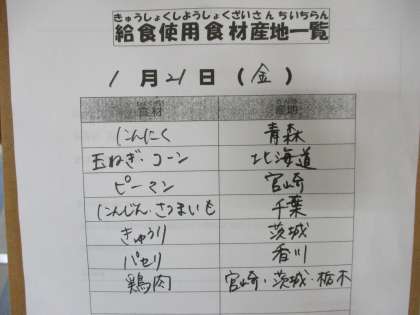 きゅうしょくしようしょくざいさんちいちらん
給食使用食材産地一覧
1月21日(金)
食材 産地
にんにく 青森
玉ねぎ・コーン 北海道
ピーマン 宮崎
にんじん・さつまいも 千葉
きゅうり 茨城
パセリ 香川
鶏肉 宮崎・茨城・栃木